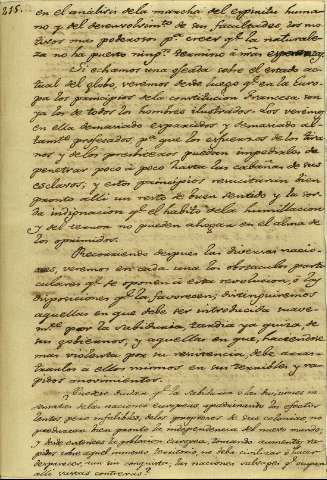 218.
en el analisis de la marcha del espiritu huma-
no y del desenvolvimto. de sus facultades, los mo-
tivos mas poderosos pa. creer qe. la naturale-
za no ha puesto ningn. termino à nras esperanzas.
Si echamos una ojeada sobre el estado ac-
tual del globo, veremos desde luego qe. en la Euro-
pa los principios de la constitucion francesa son
ya los de todos los hombres ilustrados. Los veremos
en ella demasiado esparcidos y demasiado al-
tamte. profesados pa. que los esfuerzos de los tira-
nos y de los presbiteros puedan impedirles de
penetrar poco à poco hasta las cabañas de sus
esclavos, y estos principios resucitaràn bien
pronto alli un resto de buen sentido y la sor-
da indignacion qe. el habito de la humillacion
y del terror no pueden ahogar en el alma de
los oprimidos.
Recorriendo despues las diversas nacio-
nes, veremos en cada una los obstaculos parti-
culares qe. se oponen à esta revolucion, ò las
disposiciones qe. la favorecen; distinguiremos
aquellas en que debe ser introducida suave-
mte. por la sabiduria, tardia ya quiza, de
sus gobiernos, y aquellas en que, haciendose
mas violenta por su resistencia, debe arras-
trarlos a ellos mismos en sus terribles y ra-
pidos movimientos.
¿Puedese dudar qe. la sabiduria ò las divisiones in-
sensatas de las naciones europeas apadrinando los efectos
lentos, pero infalibles, de los progresos de sus colonias, no
produzcan bien pronto la independencia del nuevo mundo,
y desde entonces la poblacion europea, tomando aumentos ra-
pidos sobre aquel inmenso territorio, no debe civilizar ò hacer
desaparecer, aun sin conquista, las naciones salvages qe. ocupan
alli vastas comarcas?